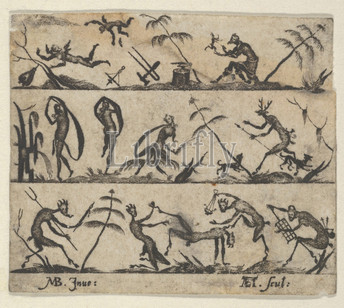 Librifly
MB. Inue: Rl. Scul: